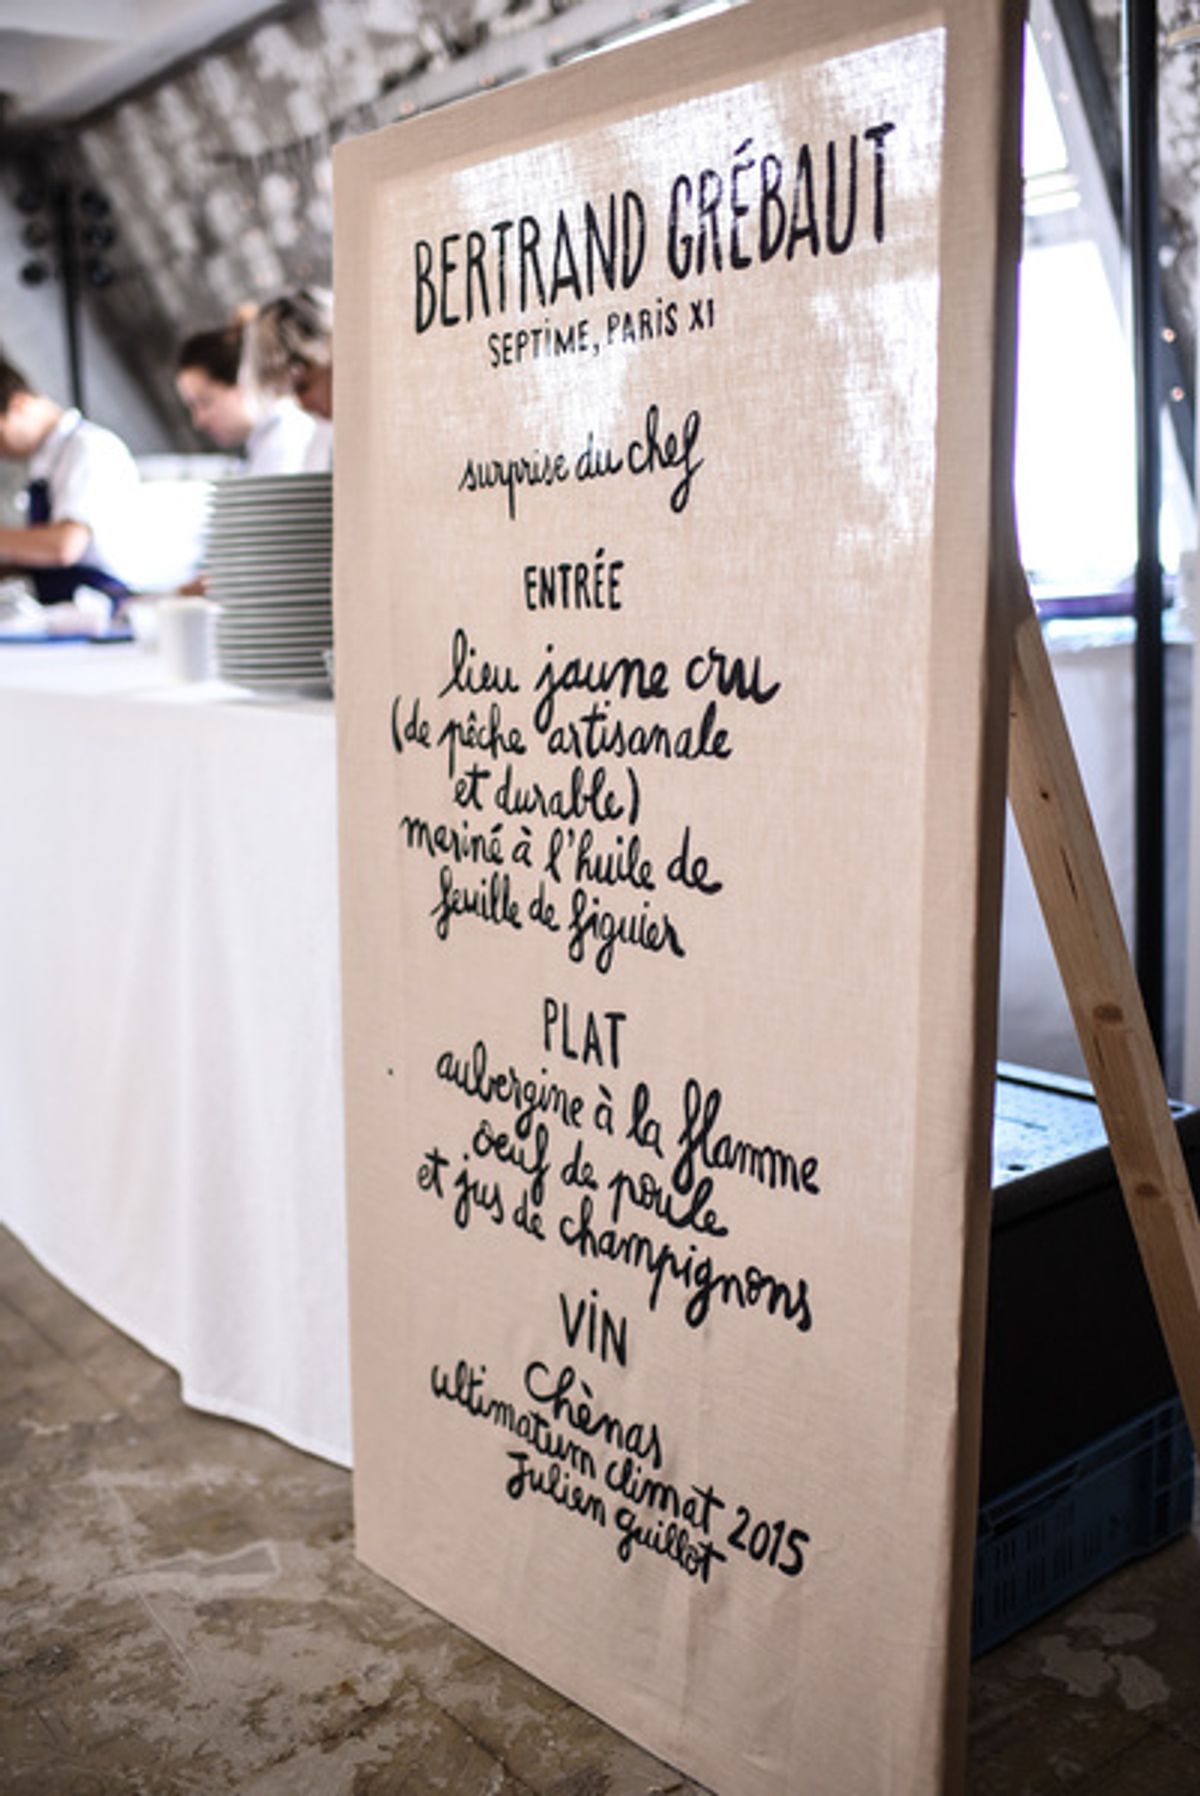 BERTRAND GRÉBAUT
SEPTIME, PARIS XI
surprise du chef
ENTRÉE
lieu jaune cru
(de pêche artisanale
et durable)
mariné à l'huile de
feuille de figuier
PLAT
aubergine à la flamme
oeuf de poule
et jus de champignons
VIN
Chènas
ultimatum climat 2015
Julien guillot